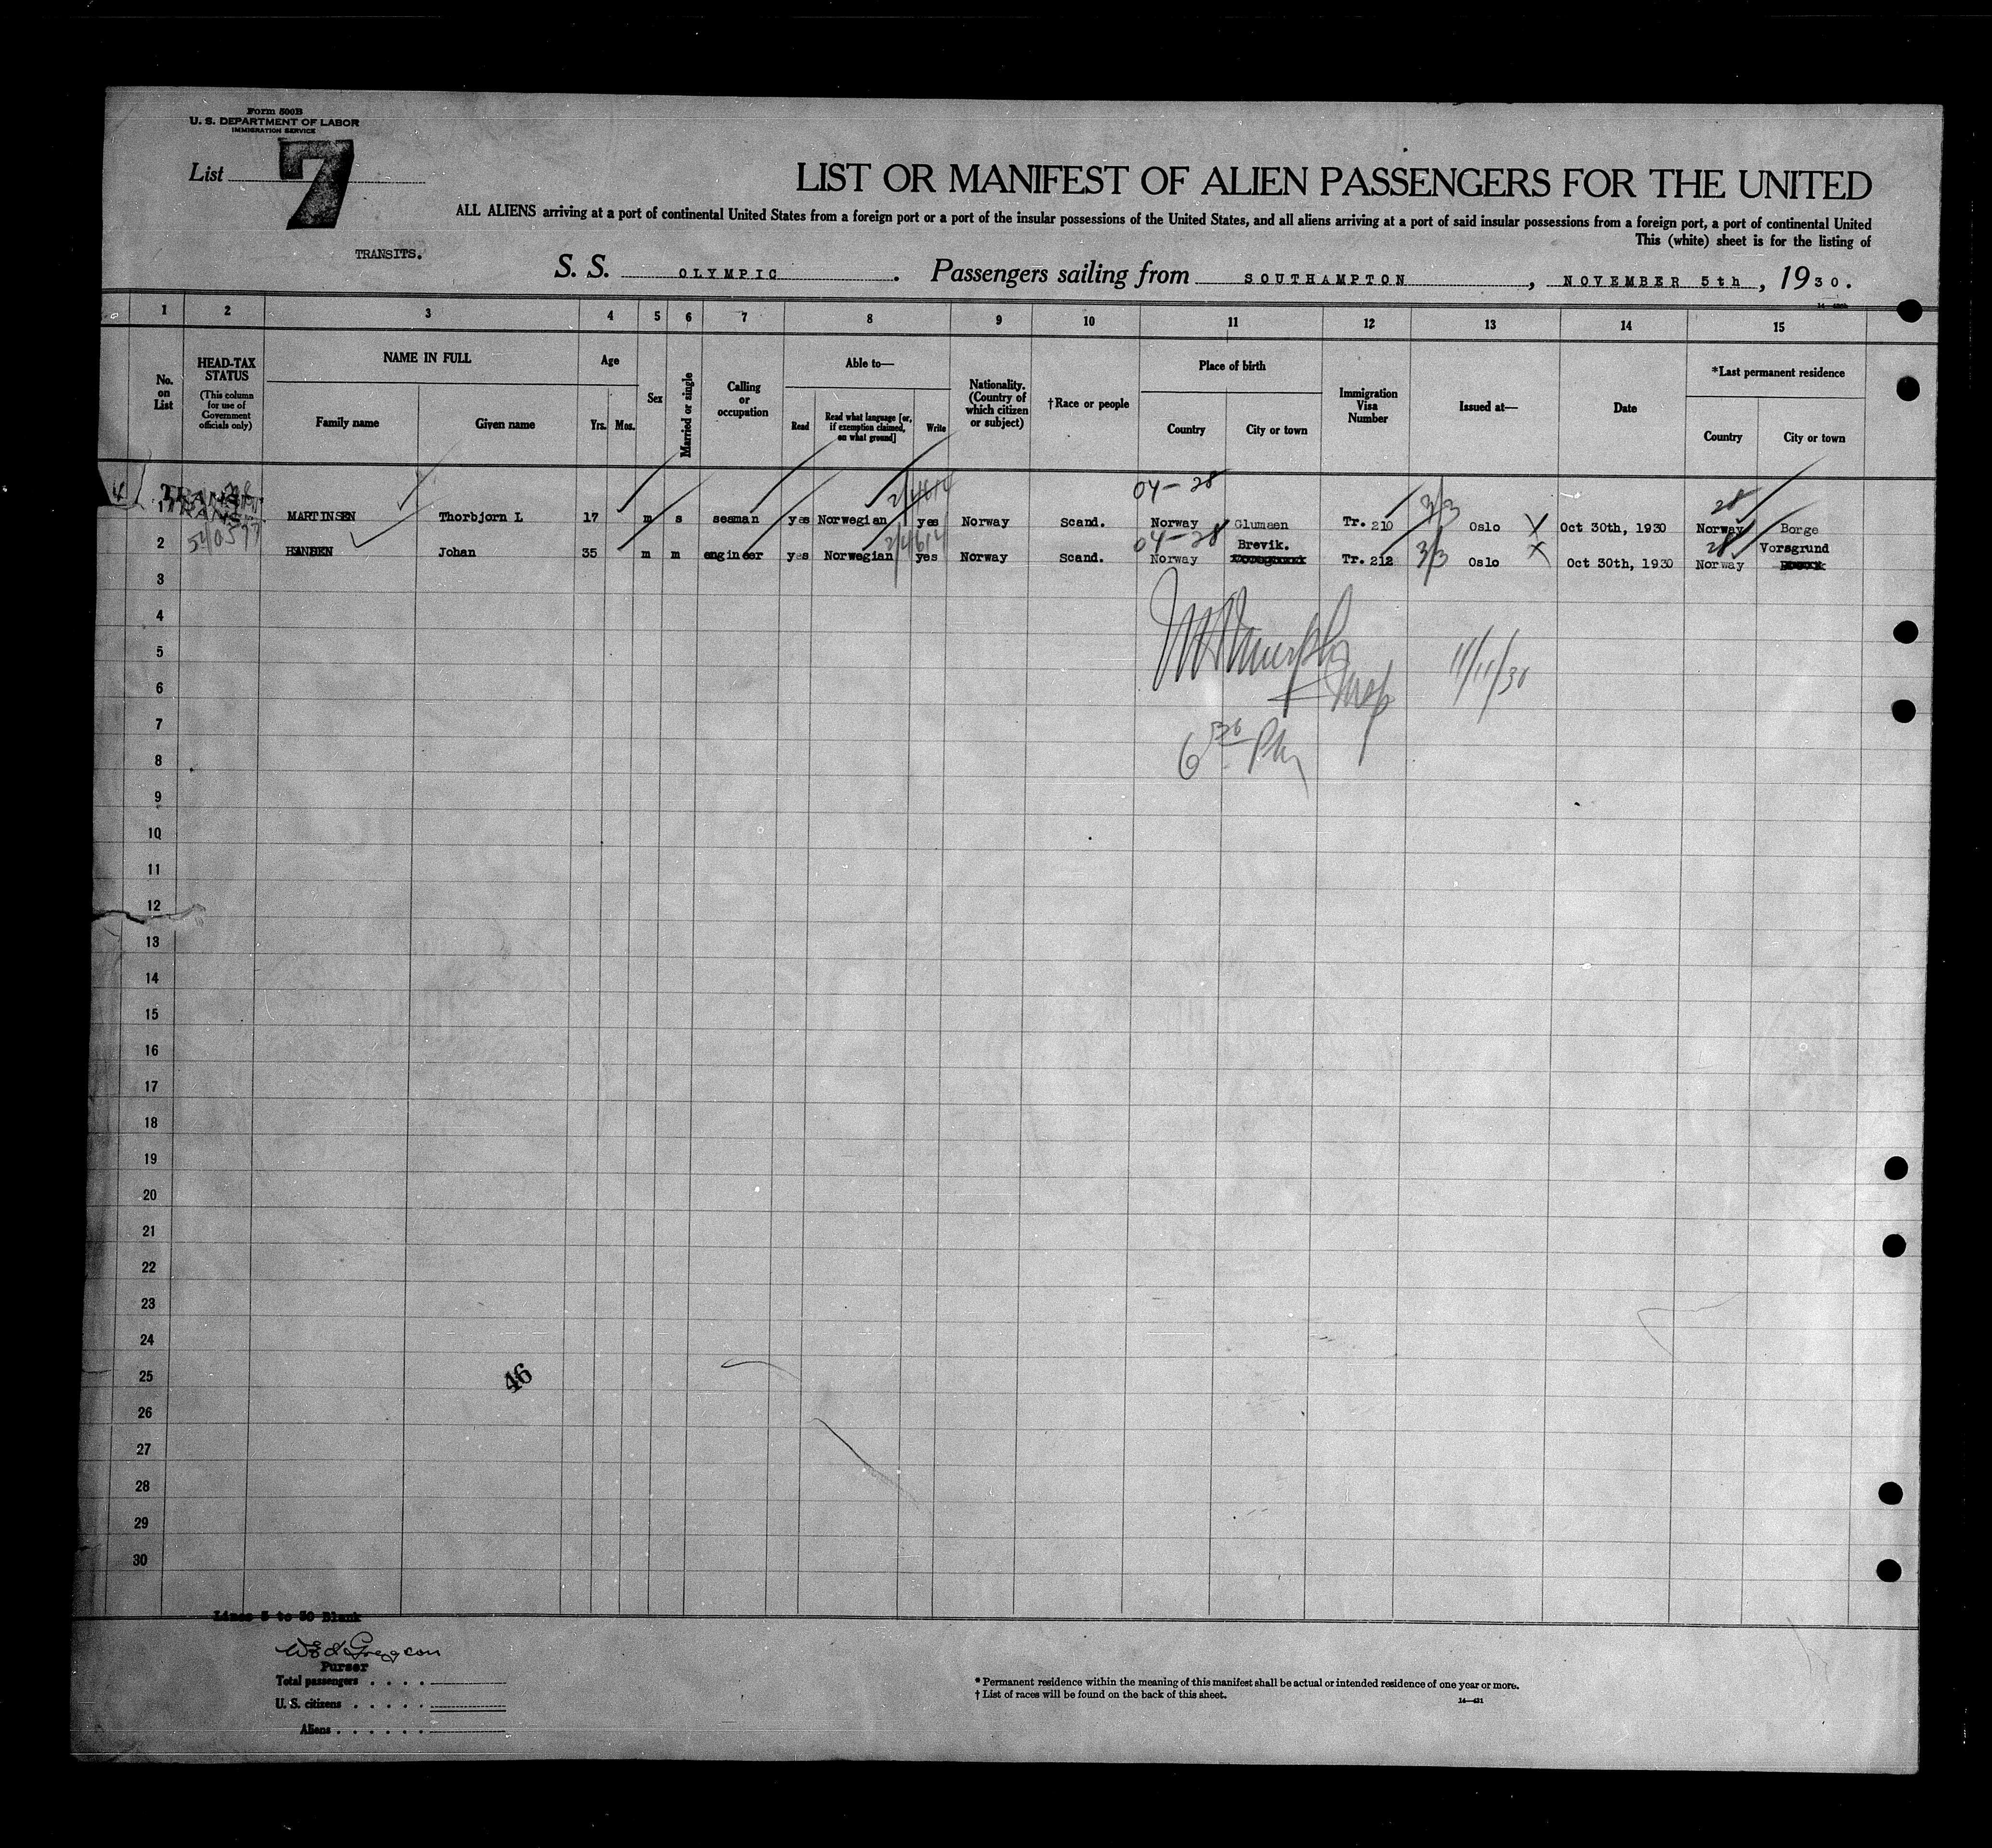 Form 500B
U. S. DEPARTMENT OF LABOR
IMMIGRATION SERVICE
List 7
LIST OR MANIFEST OF ALIEN PASSENGERS FOR THE UNITED
ALL ALIENS arriving at a port of continental United States from a foreign port or a port of the insular possessions of the United States, and all aliens arriving at a port of said insular possessions from a foreign port, a port of continental United
This (white) sheet is for the listing of
TRANSITS.
S. S. OLYMPIC. Passengers sailing from SOUTHAMPTON, NOVEMBER 5th, 1930.
1 2 3 4 5 6 7 8 9 10 11 12 13 14 15
No. on List
HEAD-TAX STATUS
(This column for use of Government officials only)
NAME IN FULL
Family name
Given name
Age
Yrs. Mos.
Sex
Married or single
Calling or occupation
Able to—
Read
Read what language [or, if exemption claimed, on what ground]
Write
Nationality. (Country of which citizen or subject)
†Race or people
Place of birth
Country
City or town
Immigration Visa Number
Issued at—
Date
*Last permanent residence
Country
City or town
04-28
28
1 MARTINSEN Thorbjorn L 17 m s seaman yes Norwegian yes Norway Scand. Norway Glumsen Tr. 210 3/3 Oslo Oct 30th, 1930 Norway Borge
04-28 Brevik. 28 Vorsgrund
2 HANSEN Johan 35 m m engineer yes Norwegian yes Norway Scand. Norway Tr. 212 3/3 Oslo Oct 30th, 1930 Norway
3
4
5
11/11/30
6
Insp
7
8
9
10
11
12
13
14
15
16
17
18
19
20
21
22
23
24
25
46
26
27
28
29
30
Lines 3 to 30 Blank
Purser
Total passengers . . . .
U. S. citizens . . . . .
Aliens . . . . . .
* Permanent residence within the meaning of this manifest shall be actual or intended residence of one year or more.
† List of races will be found on the back of this sheet.